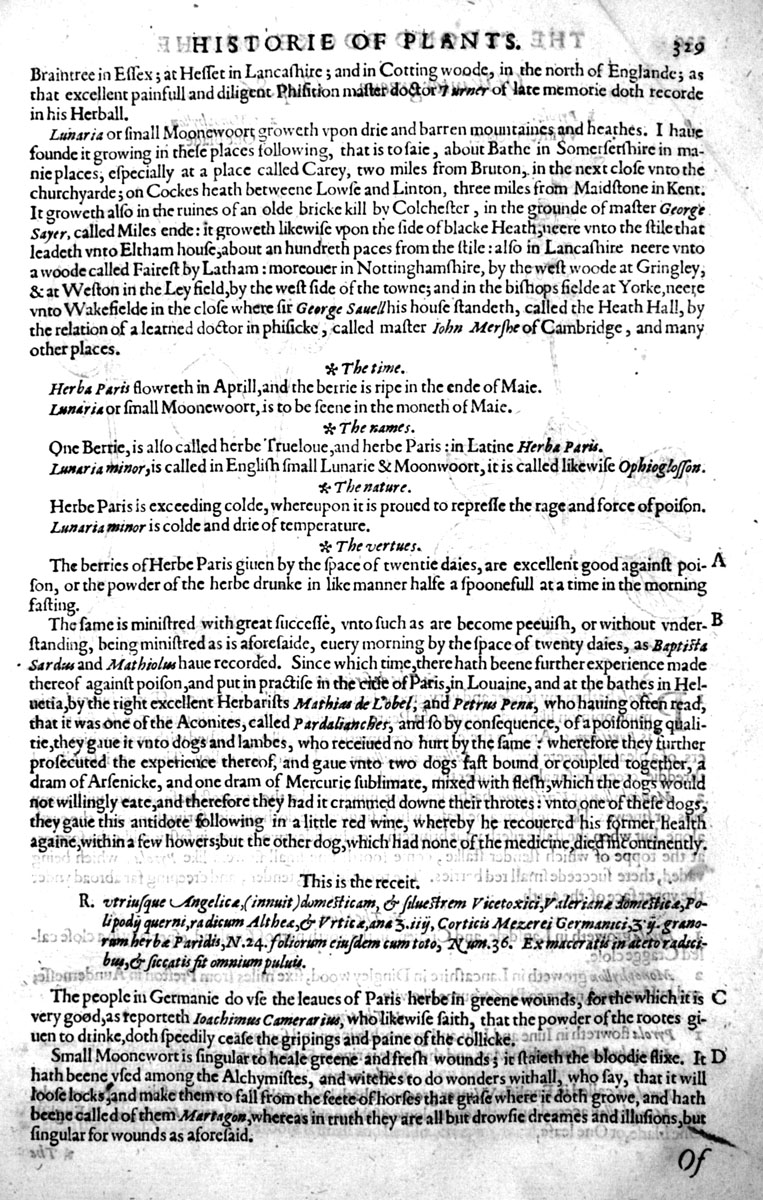 HISTORIE OF PLANTS. 329
Braintree in Eſſex; at Heſſet in Lancaſhire; and in Cotting woode, in the north of Englande; as
that excellent painfull and diligent Phiſition maſter doctor Turner of late memorie doth recorde
in his Herball.
Lunaria or ſmall Moonewoort groweth vpon drie and barren mountaines and heathes. I haue
founde it growing in theſe places following, that is to ſaie, about Bathe in Somerſetſhire in ma-
nie places, eſpecially at a place called Carey, two miles from Bruton, in the next cloſe vnto the
churchyarde; on Cockes heath betweene Lowſe and Linton, three miles from Maidſtone in Kent.
It groweth alſo in the ruines of an olde bricke kill by Colcheſter, in the grounde of maſter George
Sayer, called Miles ende: it groweth likewiſe vpon the ſide of blacke Heath, neere vnto the ſtile that
leadeth vnto Eltham houſe, about an hundreth paces from the ſtile: alſo in Lancaſhire neere vnto
a woode called Faireſt by Latham: moreouer in Nottinghamſhire, by the weſt woode at Gringley,
& at Weſton in the Ley field, by the weſt ſide of the towne; and in the biſhops fielde at Yorke, neere
vnto Wakefielde in the cloſe where ſir George Sauell his houſe ſtandeth, called the Heath Hall, by
the relation of a learned doctor in phiſicke, called maſter Iohn Merſhe of Cambridge, and many
other places.
✻ The time.
Herba Paris flowreth in Aprill, and the berrie is ripe in the ende of Maie.
Lunaria or ſmall Moonewoort, is to be ſeene in the moneth of Maie.
✻ The names.
One Berrie, is alſo called herbe Trueloue, and herbe Paris: in Latine Herba Paris.
Lunaria minor, is called in Engliſh ſmall Lunarie & Moonwoort, it is called likewiſe Ophiogloſſon.
✻ The nature.
Herbe Paris is exceeding colde, whereupon it is proued to repreſſe the rage and force of poiſon.
Lunaria minor is colde and drie of temperature.
✻ The vertues.
The berries of Herbe Paris giuen by the ſpace of twentie daies, are excellent good againſt poi- A
ſon, or the powder of the herbe drunke in like manner halfe a ſpoonefull at a time in the morning
faſting.
The ſame is miniſtred with great ſucceſſe, vnto ſuch as are become peeuiſh, or without vnder- B
ſtanding, being miniſtred as is aforeſaide, euery morning by the ſpace of twenty daies, as Baptiſta
Sardus and Mathiolus haue recorded. Since which time, there hath beene further experience made
thereof againſt poiſon, and put in practiſe in the citie of Paris, in Louaine, and at the bathes in Hel-
uetia, by the right excellent Herbariſts Mathias de L'obel, and Petrus Pena, who hauing often read,
that it was one of the Aconites, called Pardalianches, and ſo by conſequence, of a poiſoning quali-
tie, they gaue it vnto dogs and lambes, who receiued no hurt by the ſame: wherefore they further
proſecuted the experience thereof, and gaue vnto two dogs faſt bound or coupled together, a
dram of Arſenicke, and one dram of Mercurie ſublimate, mixed with fleſh, which the dogs would
not willingly eate, and therefore they had it crammed downe their throtes: vnto one of theſe dogs,
they gaue this antidote following in a little red wine, whereby he recouered his former health
againe, within a few howers; but the other dog, which had none of the medicine, died incontinently.
This is the receit.
R. vtriuſque Angelicæ, (innuit) domeſticam, & ſilueſtrem Vicetoxici, Valerianæ domeſticæ, Po-
lipodij querni, radicum Altheæ, & Vrticæ, ana ʒ. iiij, Corticis Mezerei Germanici, ʒ. ij. grano-
rum herbæ Paridis, N. 24. foliorum eiuſdem cum toto, Num. 36. Ex maceratis in aceto radici-
bus, & ſiccatis fit omnium puluis.
The people in Germanie do vſe the leaues of Paris herbe in greene wounds, for the which it is C
very good, as reporteth Ioachimus Camerarius, who likewiſe ſaith, that the powder of the rootes gi-
uen to drinke, doth ſpeedily ceaſe the gripings and paine of the collicke.
Small Moonewort is ſingular to heale greene and freſh wounds; it ſtaieth the bloodie flixe. It D
hath beene vſed among the Alchymiſtes, and witches to do wonders withall, who ſay, that it will
looſe locks, and make them to fall from the feete of horſes that graſe where it doth growe, and hath
beene called of them Martagon, whereas in truth they are all but drowſie dreames and illuſions, but
ſingular for wounds as aforeſaid.
Of